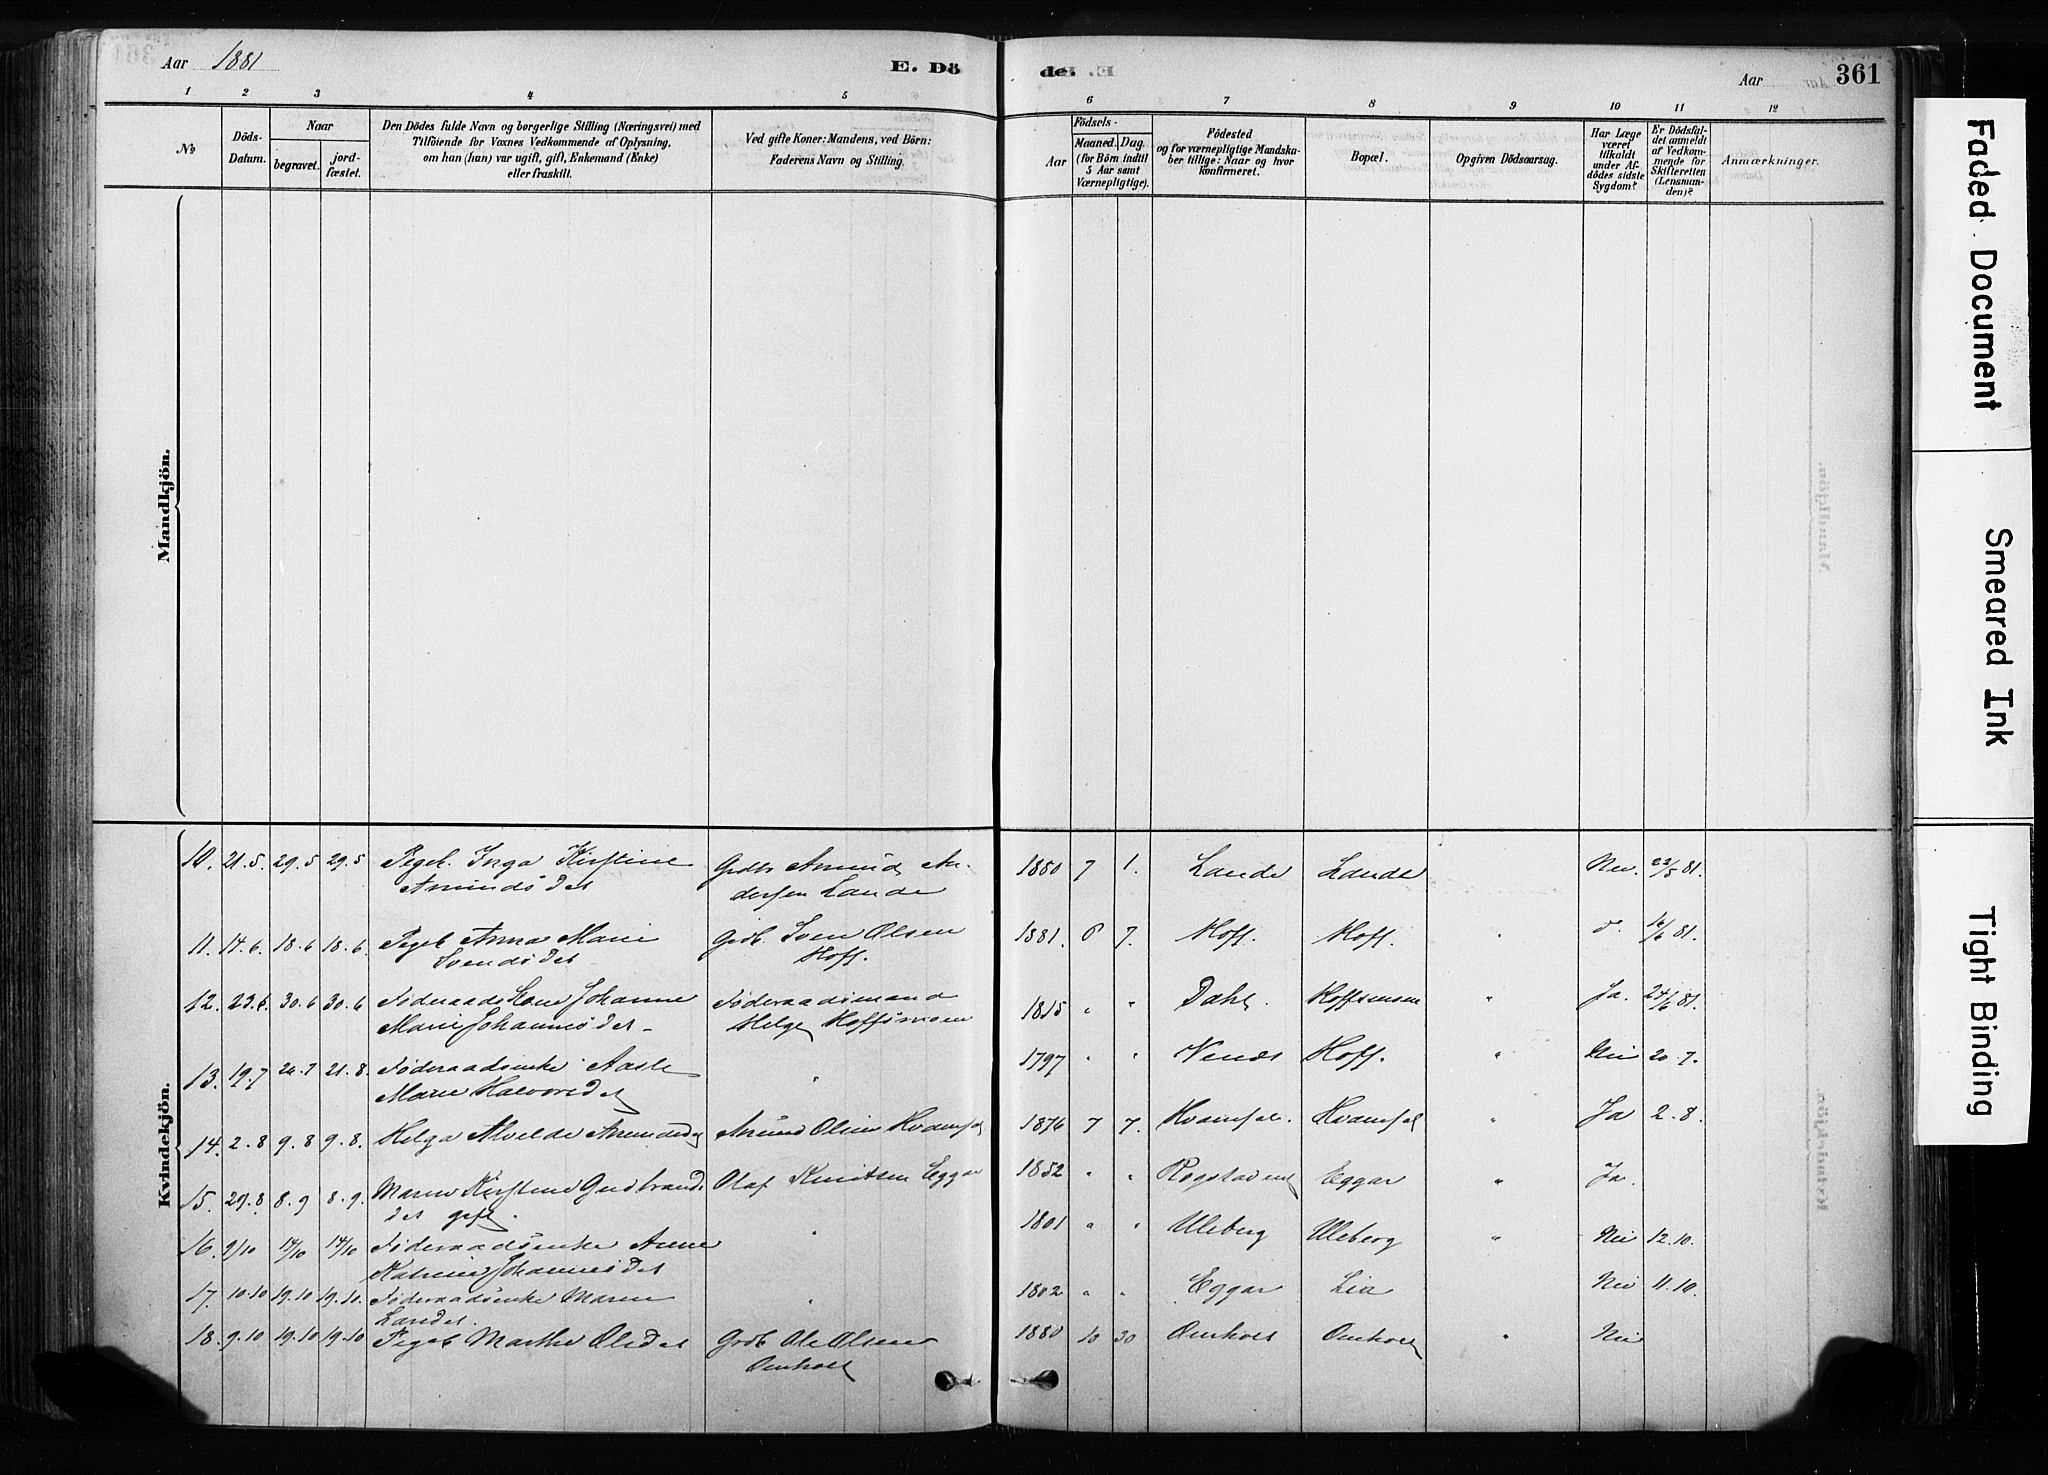 Aar 1881
E. Dö
de.
Aar
361
1 2 3 4 5 6 7 8 9 10 11 12
No
Döds-
Datum.
Naar
begravet.
jord-
fæstet.
Den Dödes fulde Navn og borgerlige Stilling (Næringsvei) med
Tilföiende for Voxnes Vedkommende af Oplysning,
om han (hun) var ugift, gift, Enkemand (Enke)
eller fraskilt.
Ved gifte Koner: Mandens, ved Börn:
Faderens Navn og Stilling.
Födsels-
Aar
Maaned. Dag.
(for Börn indtil
5 Aar samt
Værnepligtige).
Födested
og for værnepligtige Mandska-
ber tillige: Naar og hvor
konfirmeret.
Bopæl.
Opgiven Dödsaarsag.
Har Læge
været
tilkaldt
under Af-
dödes sidste
Sygdom?
Er Dödsfal-
det anmeldt
af Vedkom-
mende for
Skifteretten
(Lensman-
den)?
Anmærkninger.
Mandkjön.
Kvindekjön.
10. 21.5. 29.5 29.5 Pigeb. Inga Kirstine Grdbr Amund An- 1880 7 1. Lande Lande Nei. 22/5 81.
Amundsdet dersen Lande
11. 14.6. 18.6 18.6. Pigeb Anna Marie Grdb. Sven Olsen 1881. 6 7. Hoff. Hoff. " d. 16/6 81.
Svendsdet Hoff.
12. 23.6. 30.6 30.6 Föderaadskone Johanne Föderaadsmand 1815 " " Dahl. Hoffsmoen " Ja. 24/6 81.
Marie Johannesdet Helge Hoffsmoen
13. 19.7 24.7 21.8. Föderaadsenke Aasle " 1797 " " Hoff. " Nei 20.7.
Marie Halvorsdet
14. 2.8 9.8 9.8. Helga Alvilde Amundsd Amund Olsen Hvamsel 1876 7 7. Hvamsel. Hvamsel " Ja 2.8.
15. 29.8. 8.9 8.9. Maren Kirstine Gudbrands Olaf Knutsen Eggar 1852 " " Eggar " Ja.
det gift.
16. 9/10 14/10 14/10 Föderaadsenke Anne " 1801 " " Uleberg Uleberg " Nei 12.10.
Katrine Johannesdet
17. 10.10 19.10 19.10. Föderaadsenke Maren " 1802 " " Eggar Lia Nei 11.10.
Larsdet.
18. 9.10 19.10 19.10 Pigeb Marthe Olsdet Grdb Ole Olsen 1880 10 30 Omholt Omholt " Nei
Omholt
Faded Document
Smeared Ink
Tight Binding